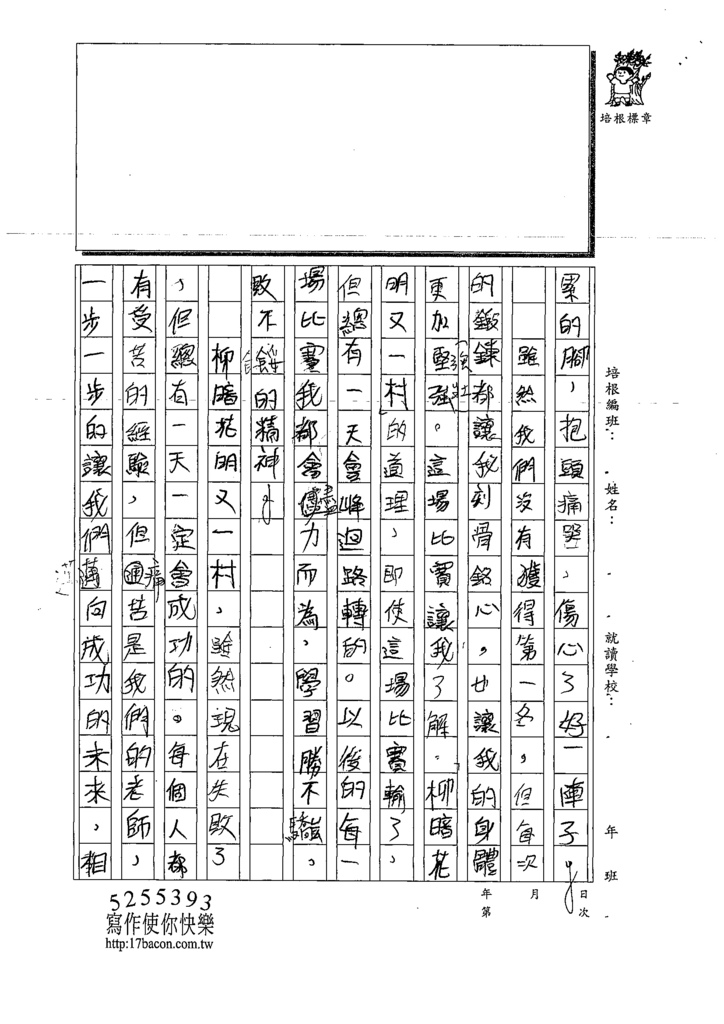 培根標章
培根編班：
姓名：
就讀學校：
年 班
累的腳，抱頭痛哭，傷心了好一陣子。
雖然我們沒有獲得第一名，但每次
的鍛鍊都讓我刻骨銘心，也讓我的身體
更加堅強。這場比賽讓我了解「柳暗花
明又一村」的道理，即使這場比賽輸了，
但總有一天會峰迴路轉的。以後的每一
場比賽我都會盡力而為，學習勝不驕，
敗不餒的精神。
柳暗花明又一村，雖然現在失敗了
，但總有一天一定會成功的。每個人都
有受苦的經驗，但痛苦是我們的老師，
一步一步的讓我們邁向成功的未來，相
日次
月
年第
5255393
寫作使你快樂
http:17bacon.com.tw